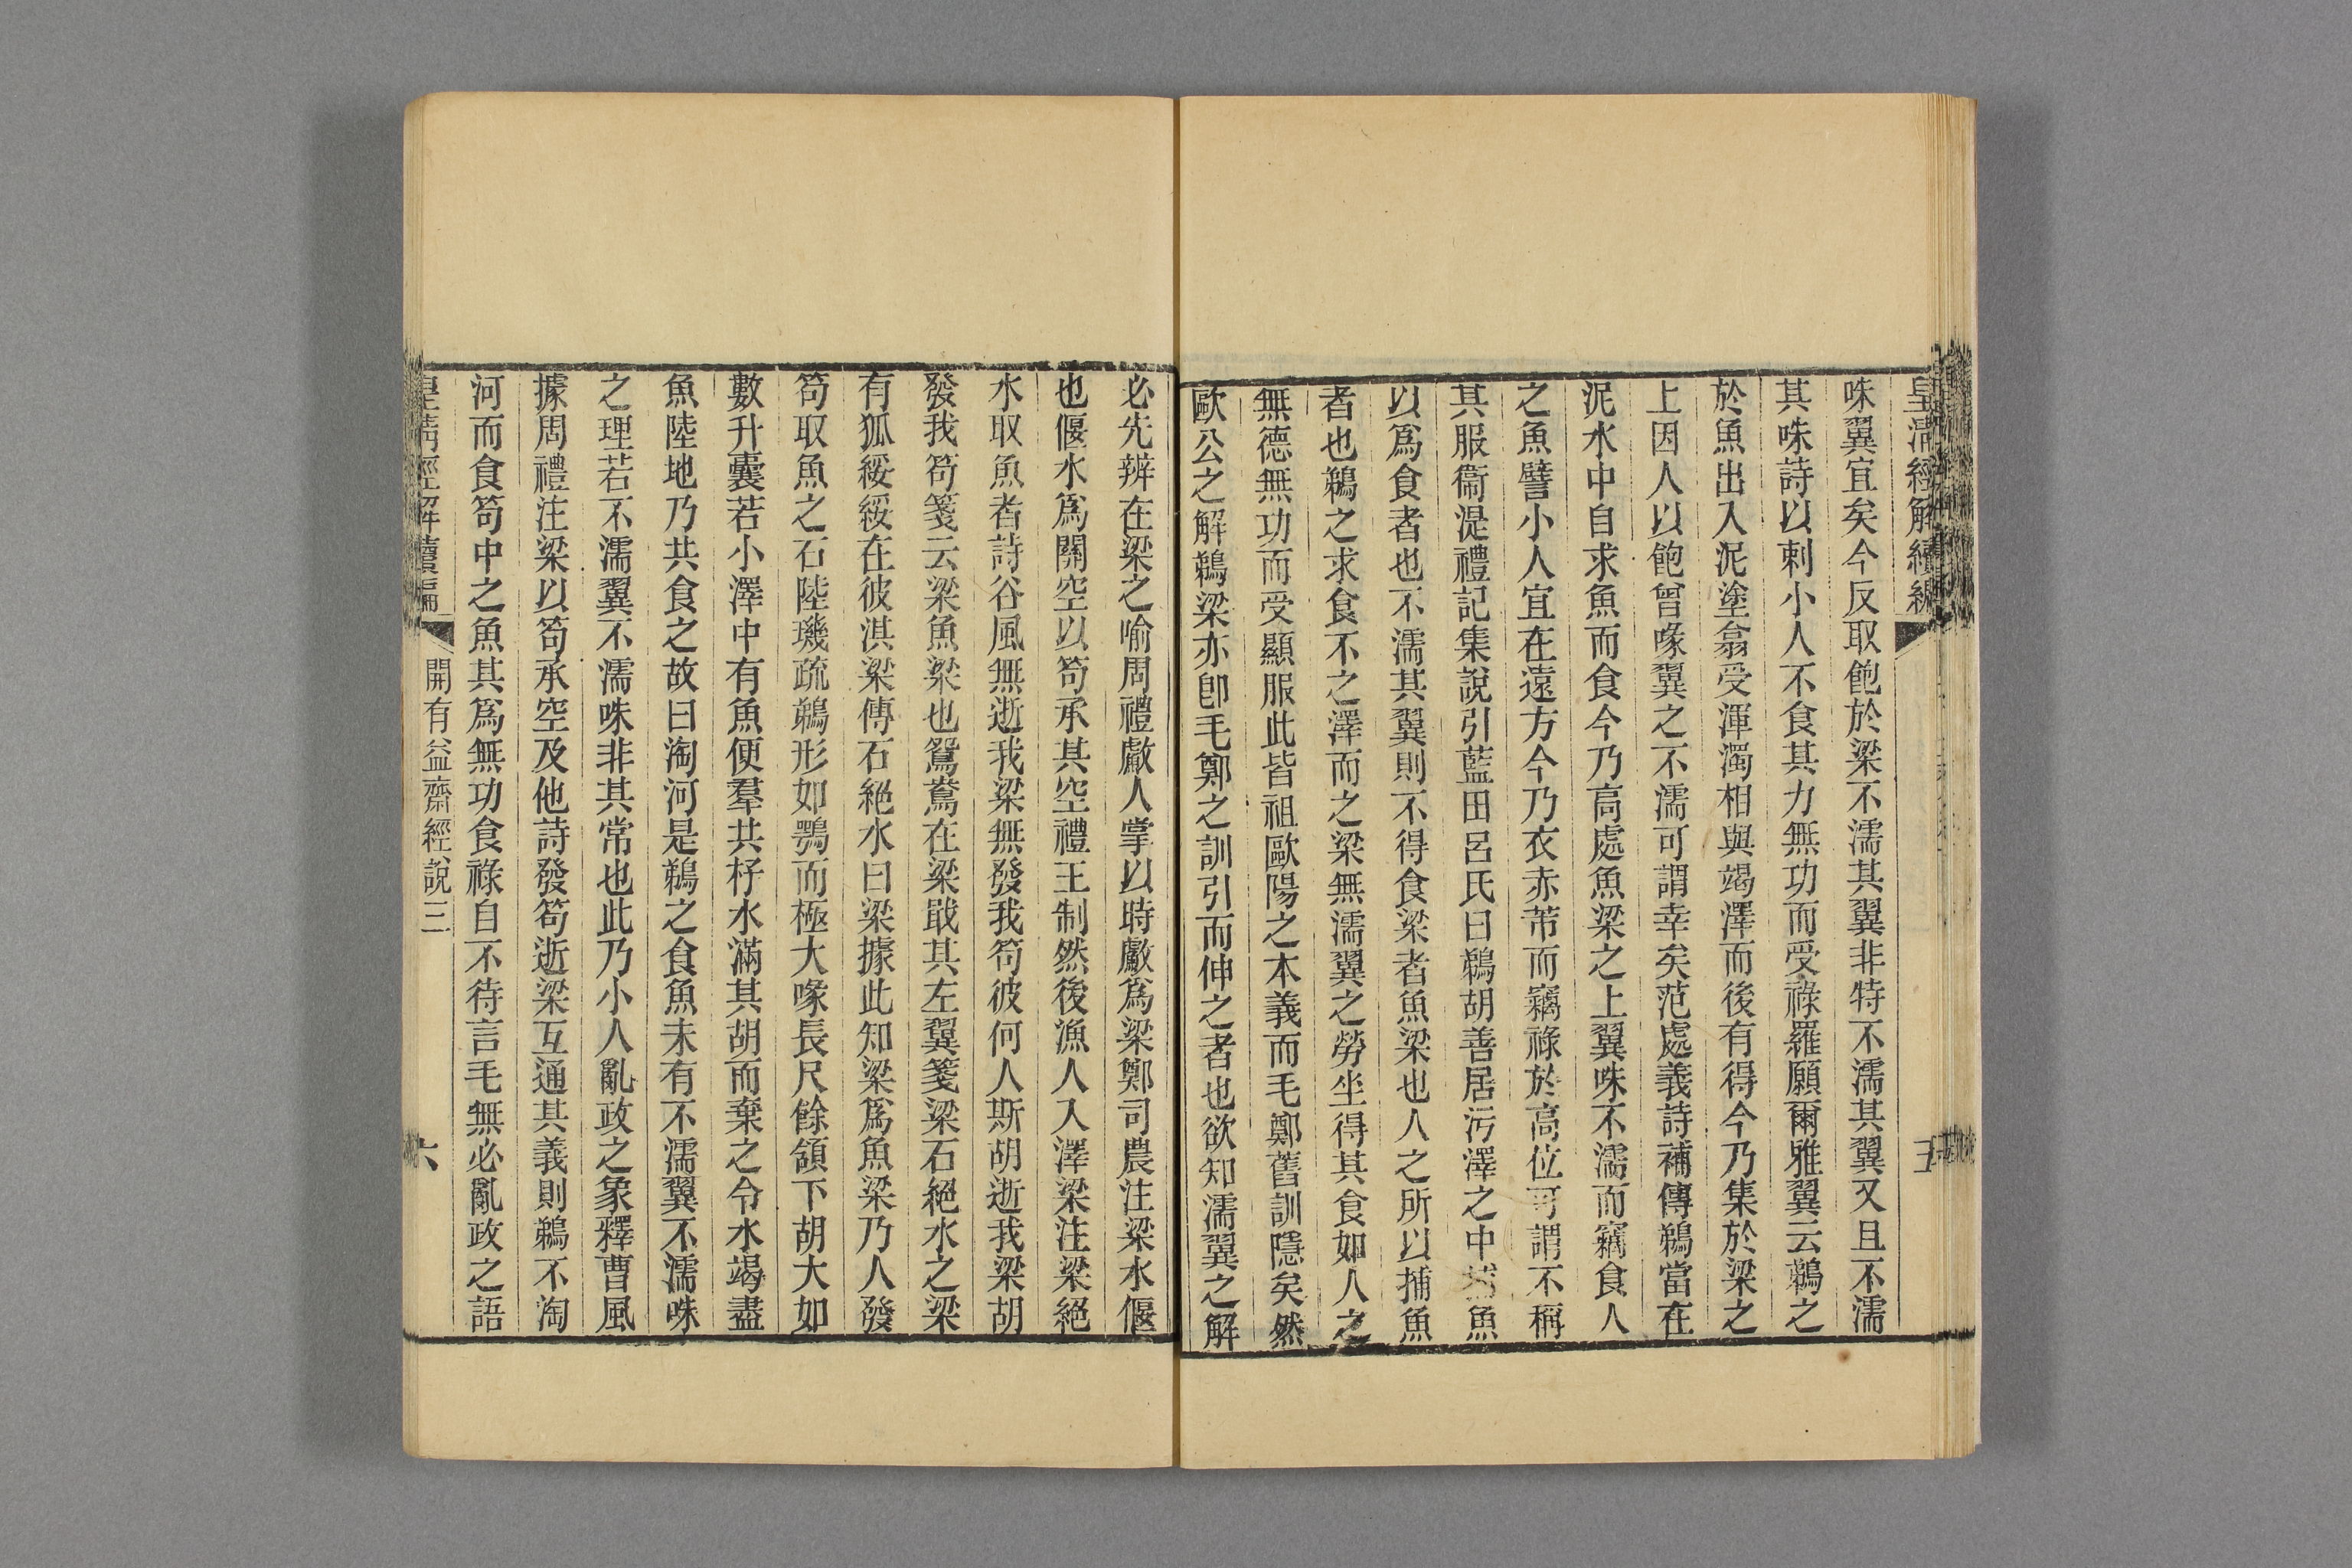 皇清經解續編
五
咮翼宜矣今反取飽於梁不濡其翼非特不濡其翼又且不濡
其咮詩以刺小人不食其力無功而受祿羅願爾雅翼云鵜之
於魚出入泥塗翕受渾濁相與竭澤而後有得今乃集於梁之
上因人以飽曾喙翼之不濡可謂幸矣范處義詩補傳鵜當在
泥水中自求魚而食今乃高處魚梁之上翼咮不濡而竊食人
之魚譬小人宜在遠方今乃衣赤芾而竊祿於高位可謂不稱
其服衞湜禮記集說引藍田呂氏曰鵜胡善居污澤之中捕魚
以爲食者也不濡其翼則不得食梁者魚梁也人之所以捕魚
者也鵜之求食不之澤而之梁無濡翼之勞坐得其食如人之
無德無功而受顯服此皆祖歐陽之本義而毛鄭舊訓隱矣然
歐公之解鵜梁亦卽毛鄭之訓引而伸之者也欲知濡翼之解
必先辨在梁之喻周禮䱷人掌以時䱷爲梁鄭司農注梁水偃
也偃水爲關空以笱承其空禮王制然後漁人入澤梁注梁絕
水取魚者詩谷風無逝我梁無發我笱彼何人斯胡逝我梁胡
發我笱箋云梁魚梁也鴛鴦在梁戢其左翼箋梁石絕水之梁
有狐綏綏在彼淇梁傳石絕水曰梁據此知梁爲魚梁乃人發
笱取魚之石陸璣疏鵜形如鶚而極大喙長尺餘頷下胡大如
數升囊若小澤中有魚便羣共杼水滿其胡而棄之令水竭盡
魚陸地乃共食之故曰淘河是鵜之食魚未有不濡翼不濡咮
之理若不濡翼不濡咮非其常也此乃小人亂政之象釋曹風
據周禮注梁以笱承空及他詩發笱逝梁互通其義則鵜不淘
河而食笱中之魚其爲無功食祿自不待言毛無必亂政之語
皇清經解續編
開有益齋經說三
六